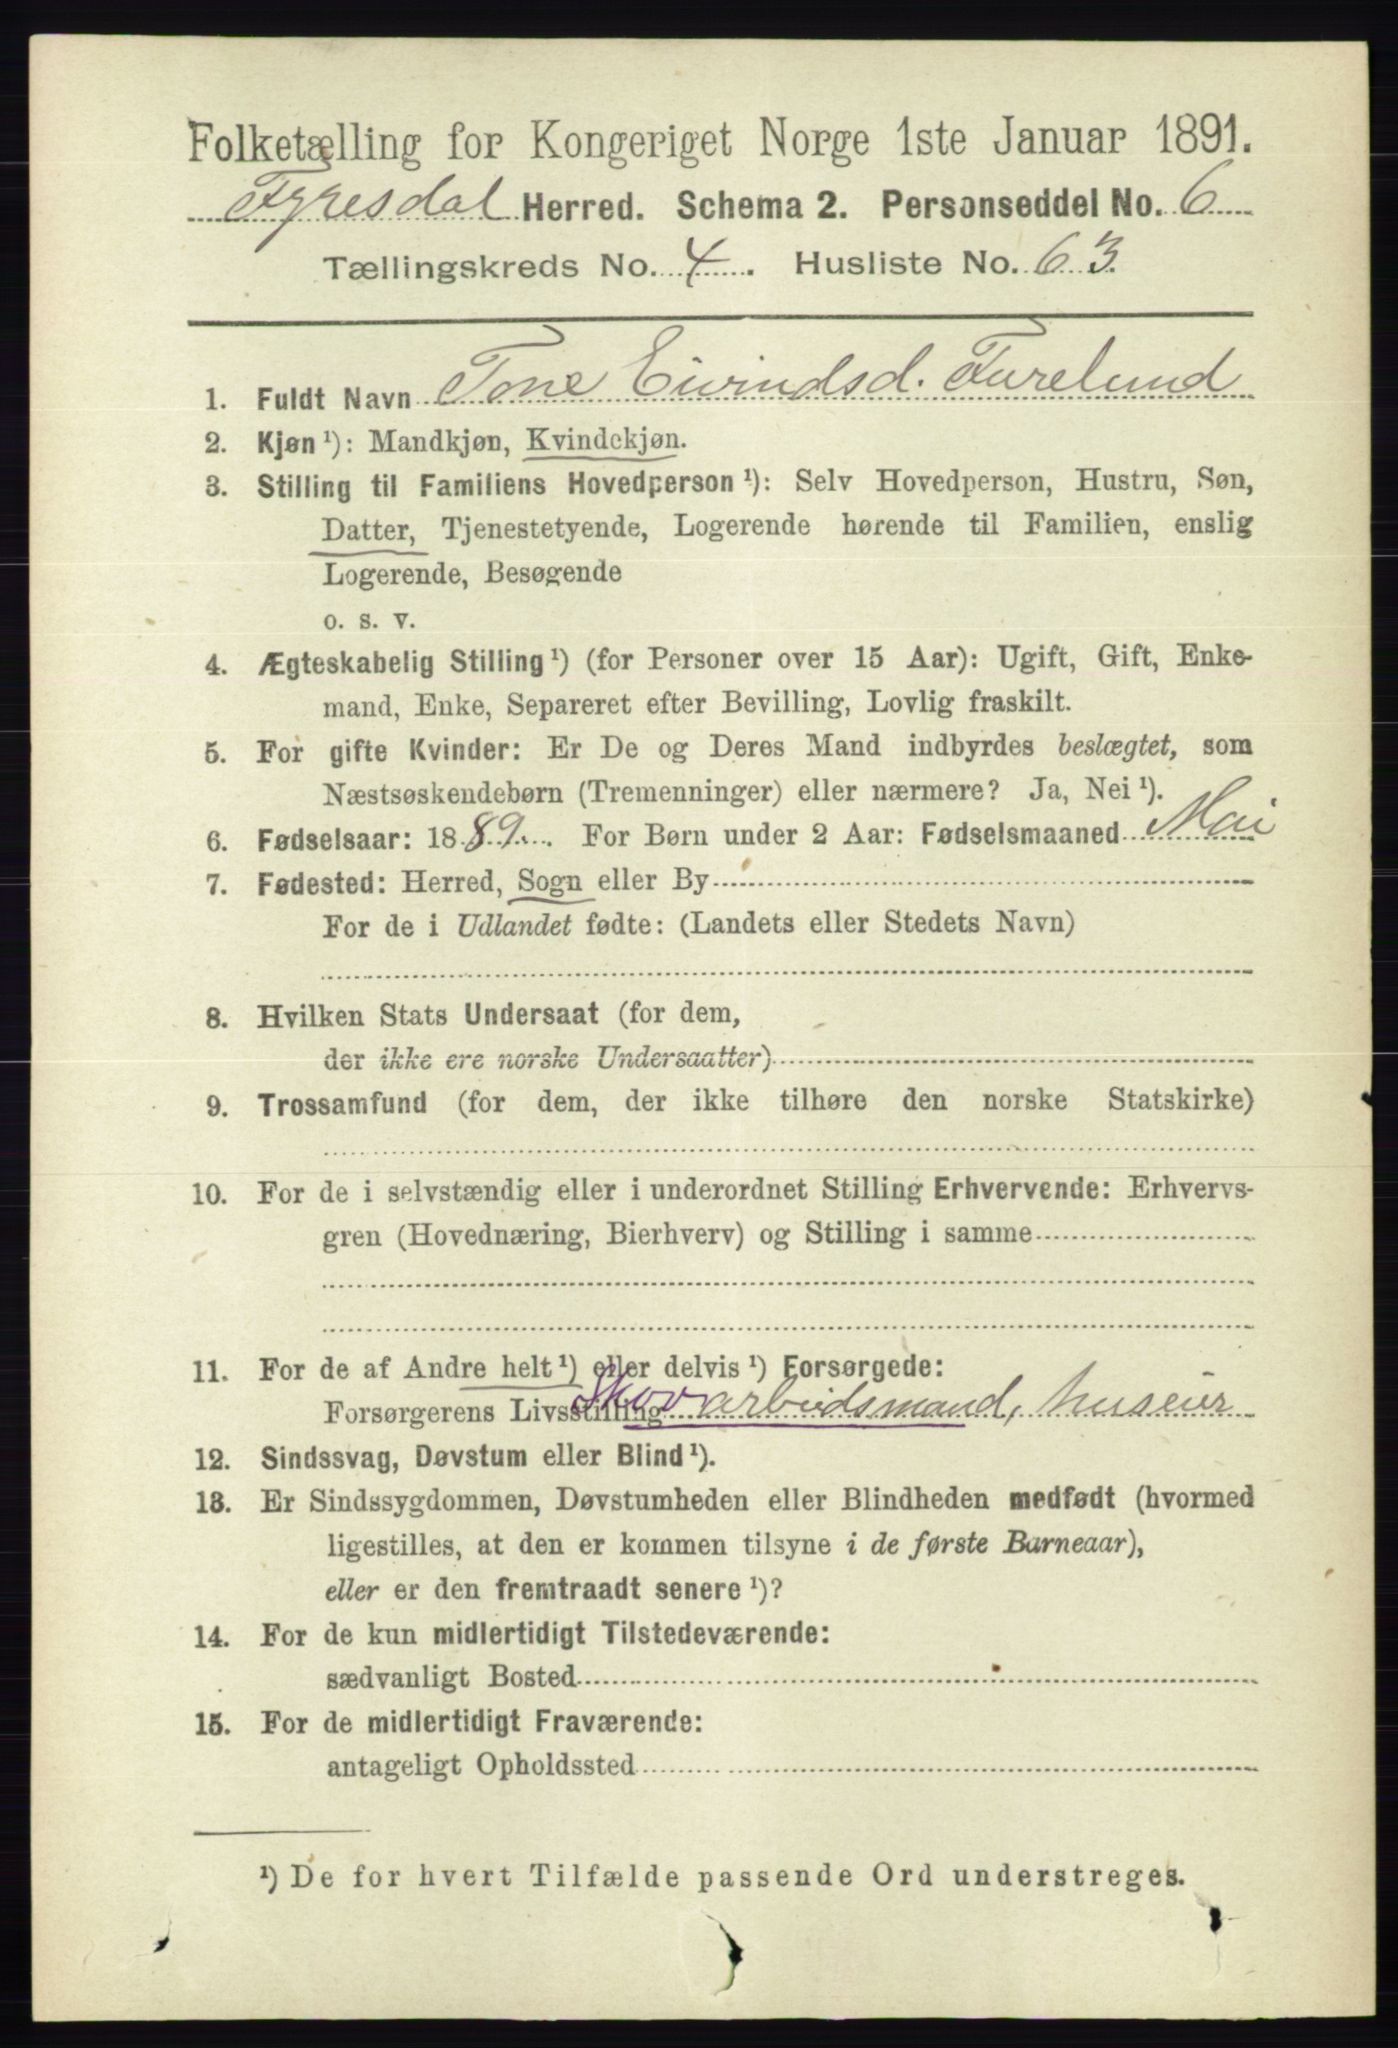 Folketælling for Kongeriget Norge 1ste Januar 1891.
Fyresdal Herred. Schema 2. Personseddel No. 6
Tællingskreds No. 4. Husliste No. 63.
1. Fuldt Navn Tone Eivindsd. Furelund
2. Kjøn ¹): Mandkjøn, Kvindekjøn.
3. Stilling til Familiens Hovedperson ¹): Selv Hovedperson, Hustru, Søn,
Datter, Tjenestetyende, Logerende hørende til Familien, enslig
Logerende, Besøgende
o. s. v.
4. Ægteskabelig Stilling ¹) (for Personer over 15 Aar): Ugift, Gift, Enke-
mand, Enke, Separeret efter Bevilling, Lovlig fraskilt.
5. For gifte Kvinder: Er De og Deres Mand indbyrdes beslægtet, som
Næstsøskendebørn (Tremenninger) eller nærmere? Ja, Nei ¹).
6. Fødselsaar: 1889. For Børn under 2 Aar: Fødselsmaaned Mai
7. Fødested: Herred, Sogn eller By
For de i Udlandet fødte: (Landets eller Stedets Navn)
8. Hvilken Stats Undersaat (for dem,
der ikke ere norske Undersaatter)
9. Trossamfund (for dem, der ikke tilhøre den norske Statskirke)
10. For de i selvstændig eller i underordnet Stilling Erhvervende: Erhvervs-
gren (Hovednæring, Bierhverv) og Stilling i samme
11. For de af Andre helt ¹) eller delvis ¹) Forsørgede:
Forsørgerens Livsstilling Skovarbeidsmand, huseier
12. Sindssvag, Døvstum eller Blind ¹).
13. Er Sindssygdommen, Døvstumheden eller Blindheden medfødt (hvormed
ligestilles, at den er kommen tilsyne i de første Barneaar),
eller er den fremtraadt senere ¹)?
14. For de kun midlertidigt Tilstedeværende:
sædvanligt Bosted
15. For de midlertidigt Fraværende:
antageligt Opholdssted
¹) De for hvert Tilfælde passende Ord understreges.